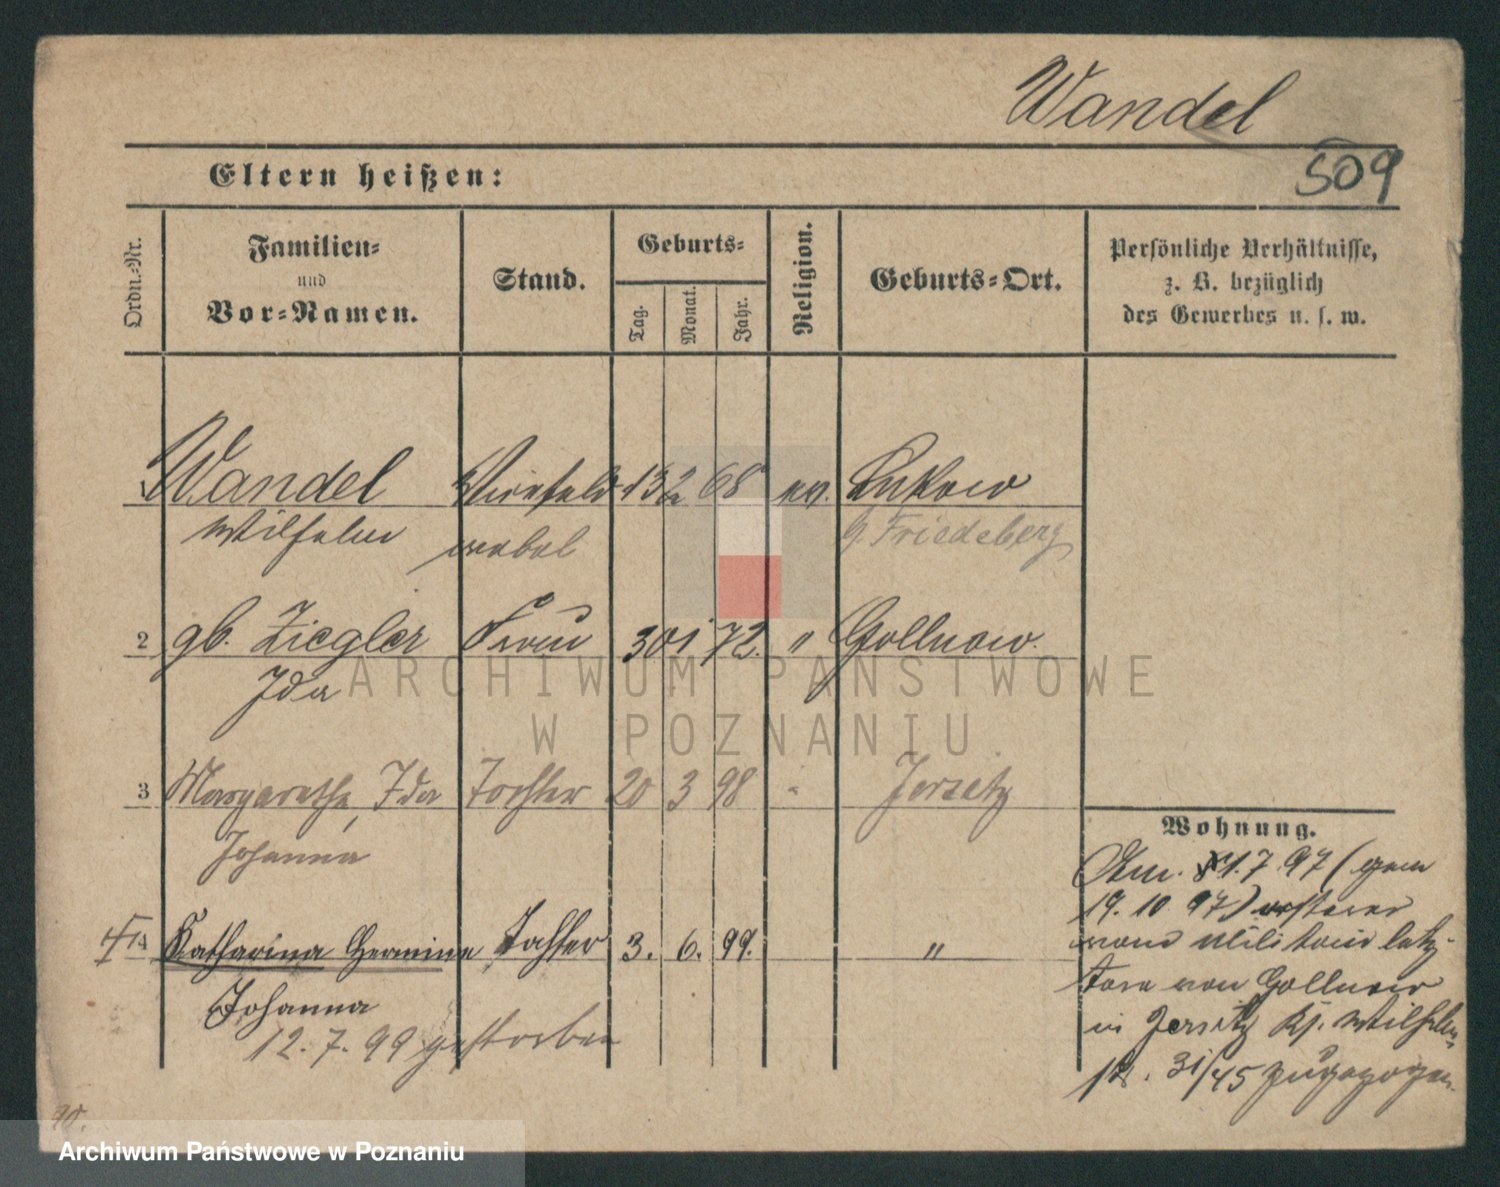 Wandel
509
Eltern heißen:
Ordn.-Nr.
Familien-
und
Vor-Namen.
Stand.
Geburts-
Tag.
Monat.
Jahr.
Religion.
Geburts-Ort.
Persönliche Verhältnisse,
z. B. bezüglich
des Gewerbes u. s. w.
Wandel Vizefeld 13 2 68 ev. Lukow
Wilhelm webel g. Friedeberg
2 gb. Ziegler Frau 30 1 72. " Gollnow.
Ida
ARCHIWUM PAŃSTWOWE
W POZNANIU
3 Margarethe, Ida Tochter 20 3 98 " Jersitz
Johanna
Wohnung.
1.7.97 (gem
19.10.97) ersterer
vom Militair letz-
tere von Gollnow
in Jersitz Kj. Wilhelm-
31/45 zugezogen.
4 Katharina Hermine Tochter 3. 6. 99. "
Johanna
12.7.99 gestorben
Archiwum Państwowe w Poznaniu